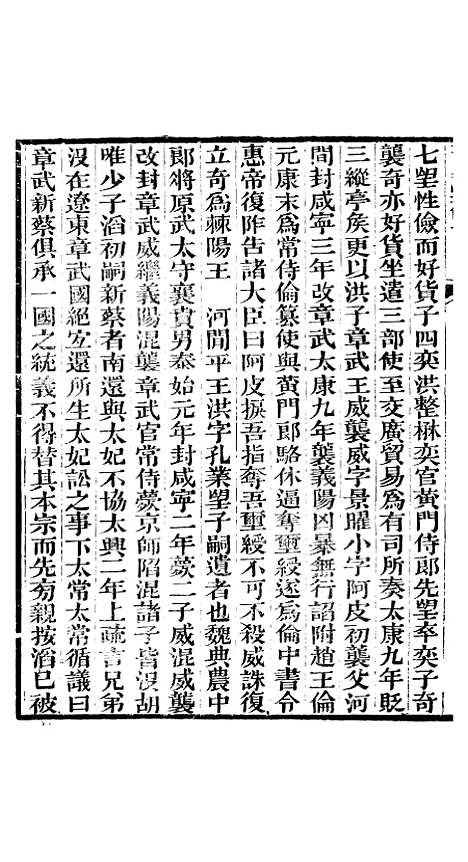 七望性儉而好貨子四奕洪整楙奕官黃門侍郎先望卒奕子奇
襲奇亦好貨坐遣三部使至交廣貿易爲有司所奏太康九年貶
三縱亭矦更以洪子章武王威襲威字景曜小字阿皮初襲父河
間封咸寧三年改章武太康九年襲義陽凶暴無行詔附趙王倫
元康末爲常侍倫簒使與黃門郎駱休逼奪璽綬遂爲倫中書令
惠帝復阼告諸大臣曰阿皮捩吾指奪吾璽綬不可不殺威誅復
立奇爲棘陽王　河間平王洪字孔業望子嗣遺者也魏典農中
郎將原武太守襄賁男泰始元年封咸寧二年薨二子威混威襲
改封章武威繼義陽混襲章武官常侍薨京師陷混諸子皆沒胡
唯少子滔初嗣新蔡者南還與太妃不協太興二年上疏言兄弟
沒在遼東章武國絕宜還所生太妃訟之事下太常太常循議曰
章武新蔡俱承一國之統義不得替其本宗而先旁親按滔已被